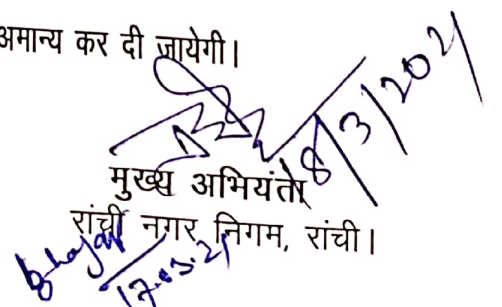 अमान्य कर दी जायेगी।
8/3/2021
मुख्य अभियंता
रांची नगर निगम, रांची।
17.03.21